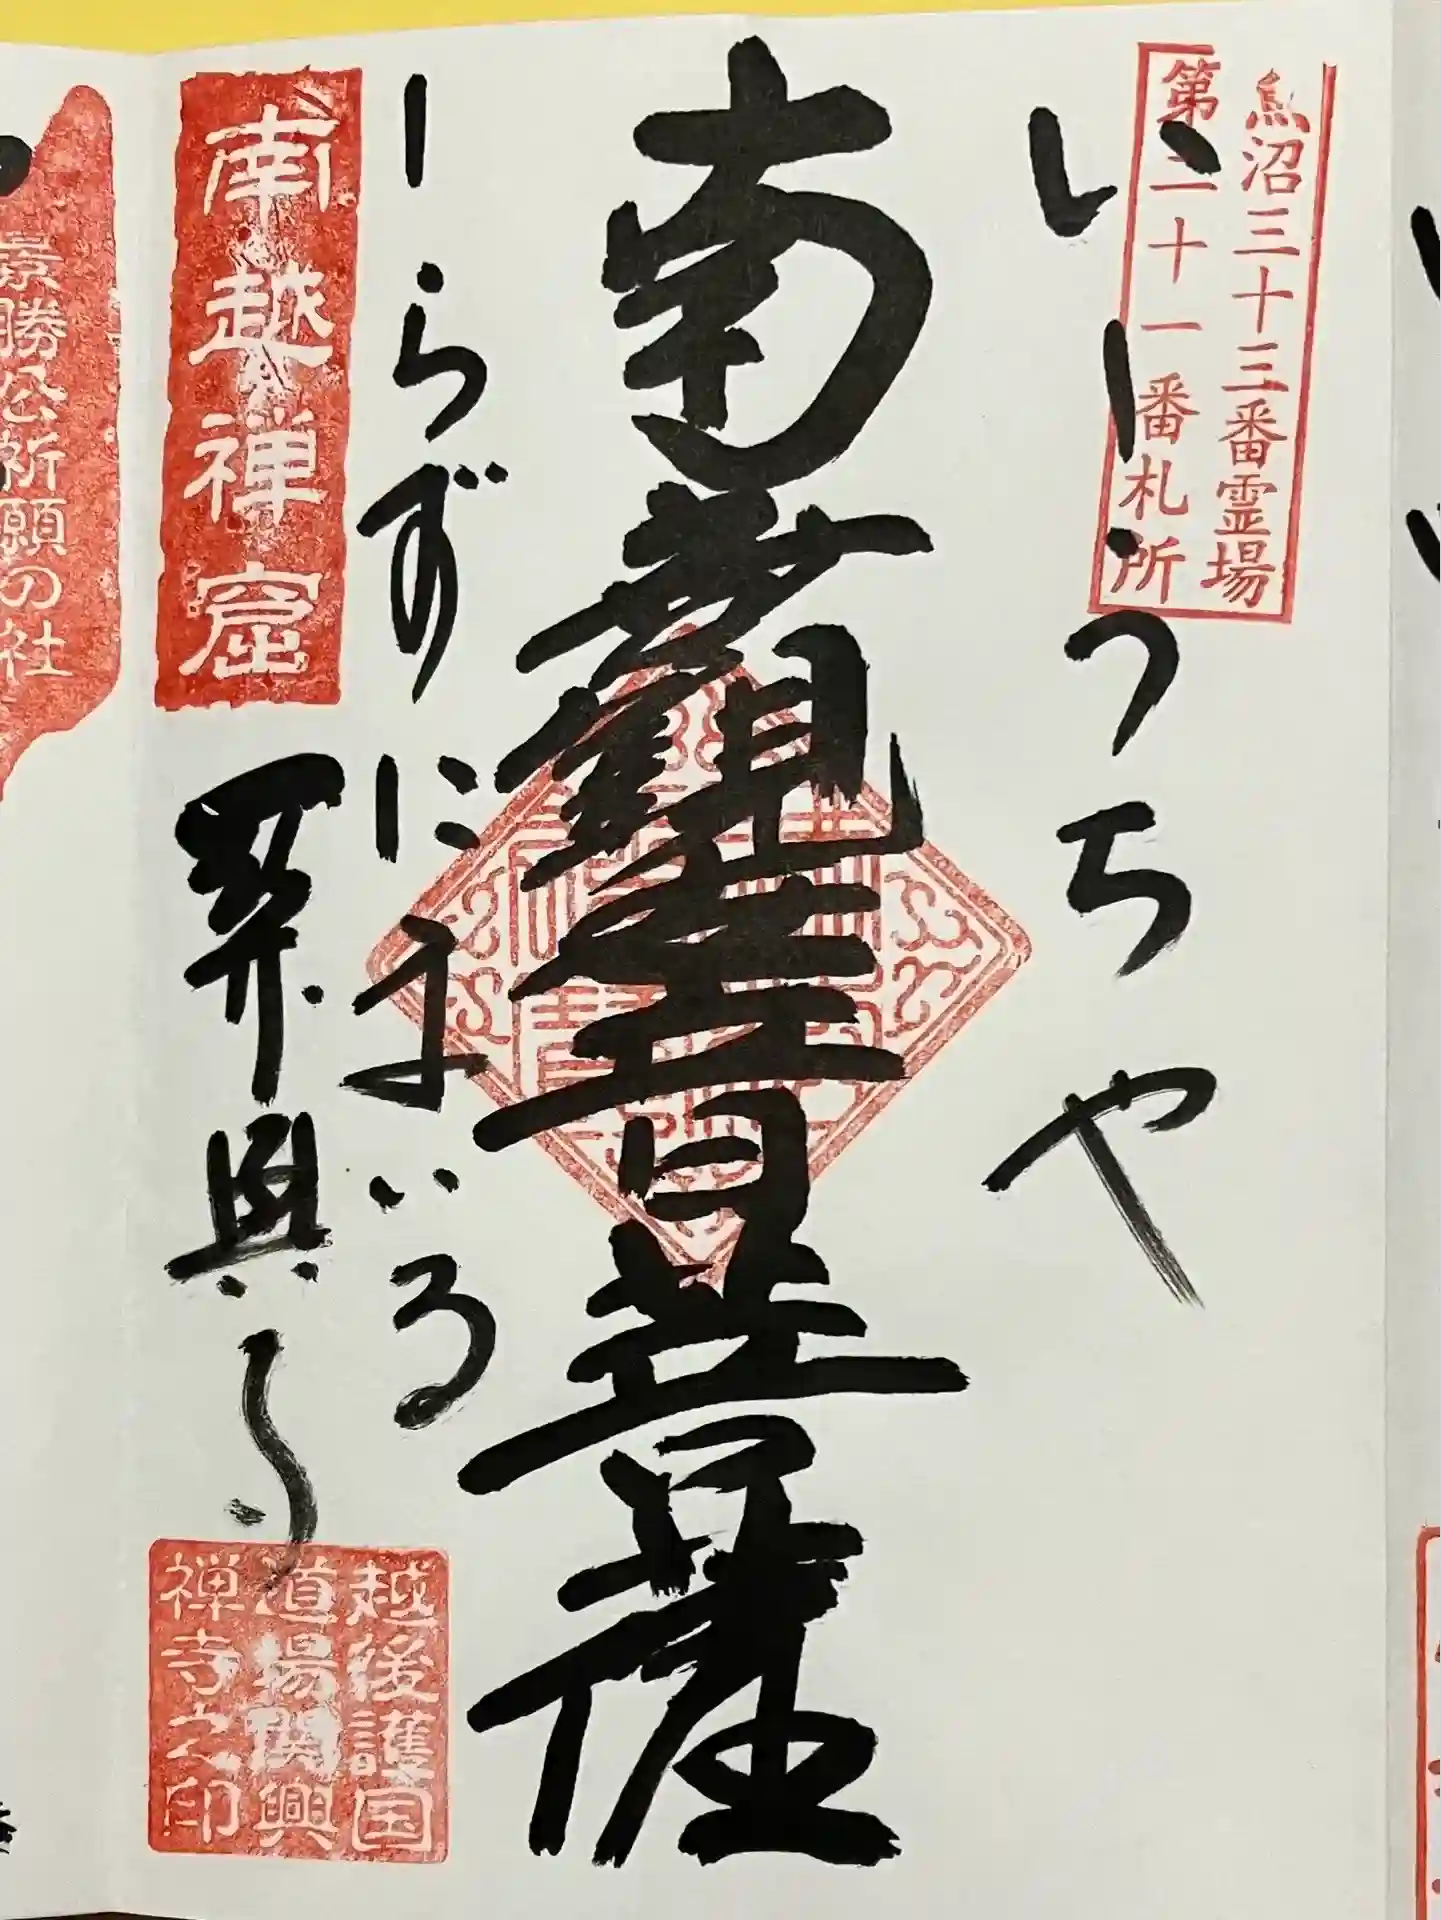 魚沼三十三番霊場
第二十一番札所
いしうちや
南觀世音菩薩
しらずにまいる
関興寺
南越禅窟
越後護国
道場関興
禅寺之印
景勝公祈願の社